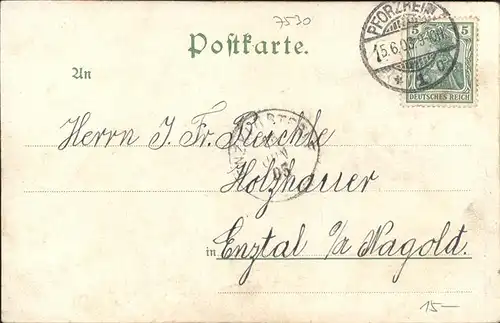 7530
Postkarte.
PFORZHEIM
5 5
DEUTSCHES REICH
An
Herrn J. Fr.
Holzhauer
in Enztal a/ Nagold.
15-